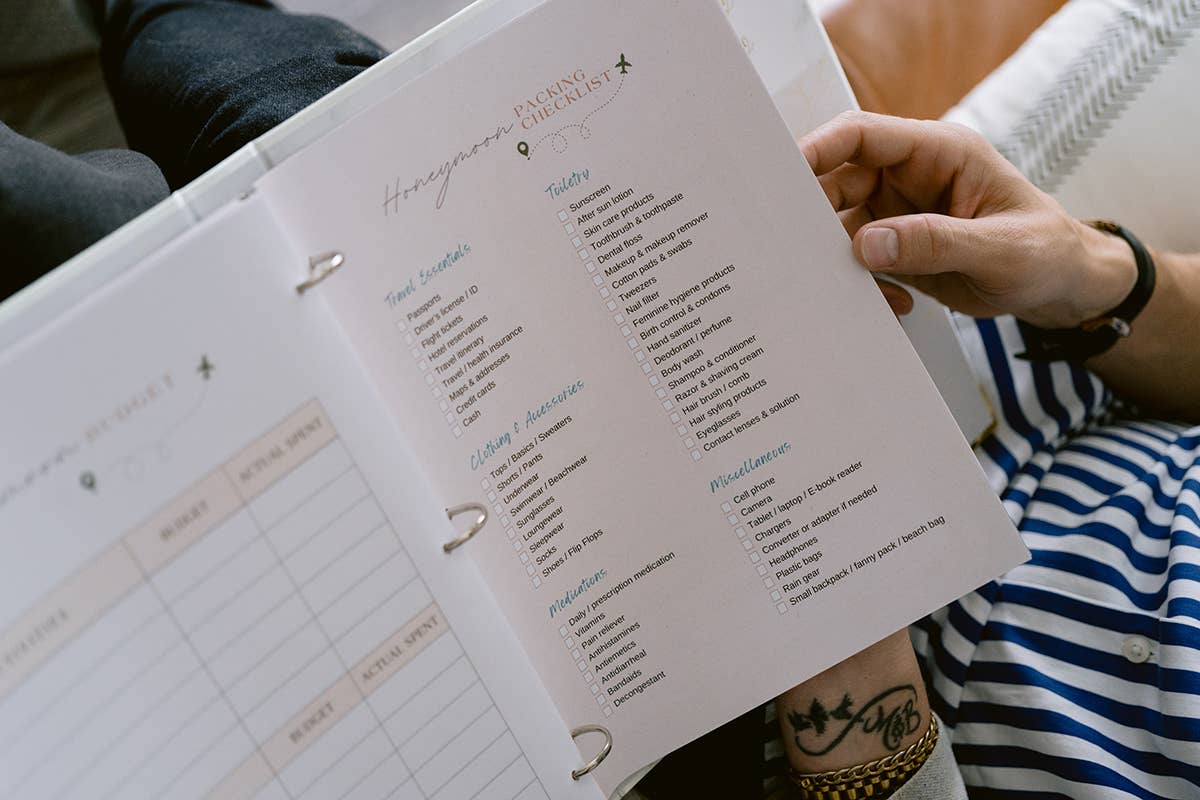 BUDGET
BUDGET
ACTUAL SPENT
BUDGET
ACTUAL SPENT
Honeymoon PACKING
CHECKLIST
Travel Essentials
Passports
Driver's license / ID
Flight tickets
Hotel reservations
Travel itinerary
Travel / health insurance
Maps & addresses
Credit cards
Cash
Clothing & Accessories
Tops / Basics / Sweaters
Shorts / Pants
Underwear
Swimwear / Beachwear
Sunglasses
Loungewear
Sleepwear
Socks
Shoes / Flip Flops
Medications
Daily / prescription medication
Vitamins
Pain reliever
Antihistamines
Antiemetics
Antidiarrheal
Bandaids
Decongestant
Toiletry
Sunscreen
After sun lotion
Skin care products
Toothbrush & toothpaste
Dental floss
Makeup & makeup remover
Cotton pads & swabs
Tweezers
Nail filter
Feminine hygiene products
Birth control & condoms
Hand sanitizer
Deodorant / perfume
Body wash
Shampoo & conditioner
Razor & shaving cream
Hair brush / comb
Hair styling products
Eyeglasses
Contact lenses & solution
Miscellaneous
Cell phone
Camera
Tablet / laptop / E-book reader
Chargers
Converter or adapter if needed
Headphones
Plastic bags
Rain gear
Small backpack / fanny pack / beach bag